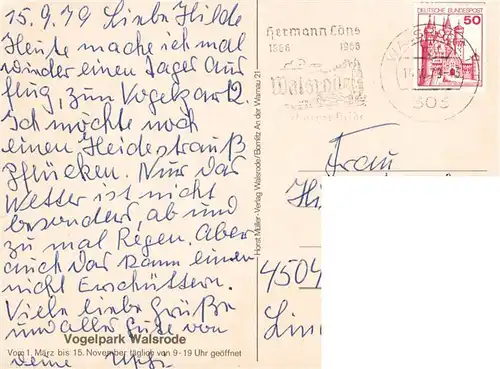 15.9.79 Liebe Hilde
Heute mache ich mal
wieder einen Tages Aus
flug, zum Vogelpark.
Ich möchte noch
einen Heidestrauß
pflücken. Nur das
Wetter ist nicht
besonders, ab und
zu mal Regen. Aber
auch das kann einen
nicht Erschüttern.
Viele liebe Grüße
und alles Gute von
deine
Vogelpark Walsrode
Vom 1. März bis 15. November täglich von 9-19 Uhr geöffnet
Horst Müller-Verlag Walsrode/Bomlitz An der Warnau 21
Hermann Löns
1866 1966
Walsrode
DEUTSCHE BUNDESPOST
50
303
Frau
Hi
4504
Lin